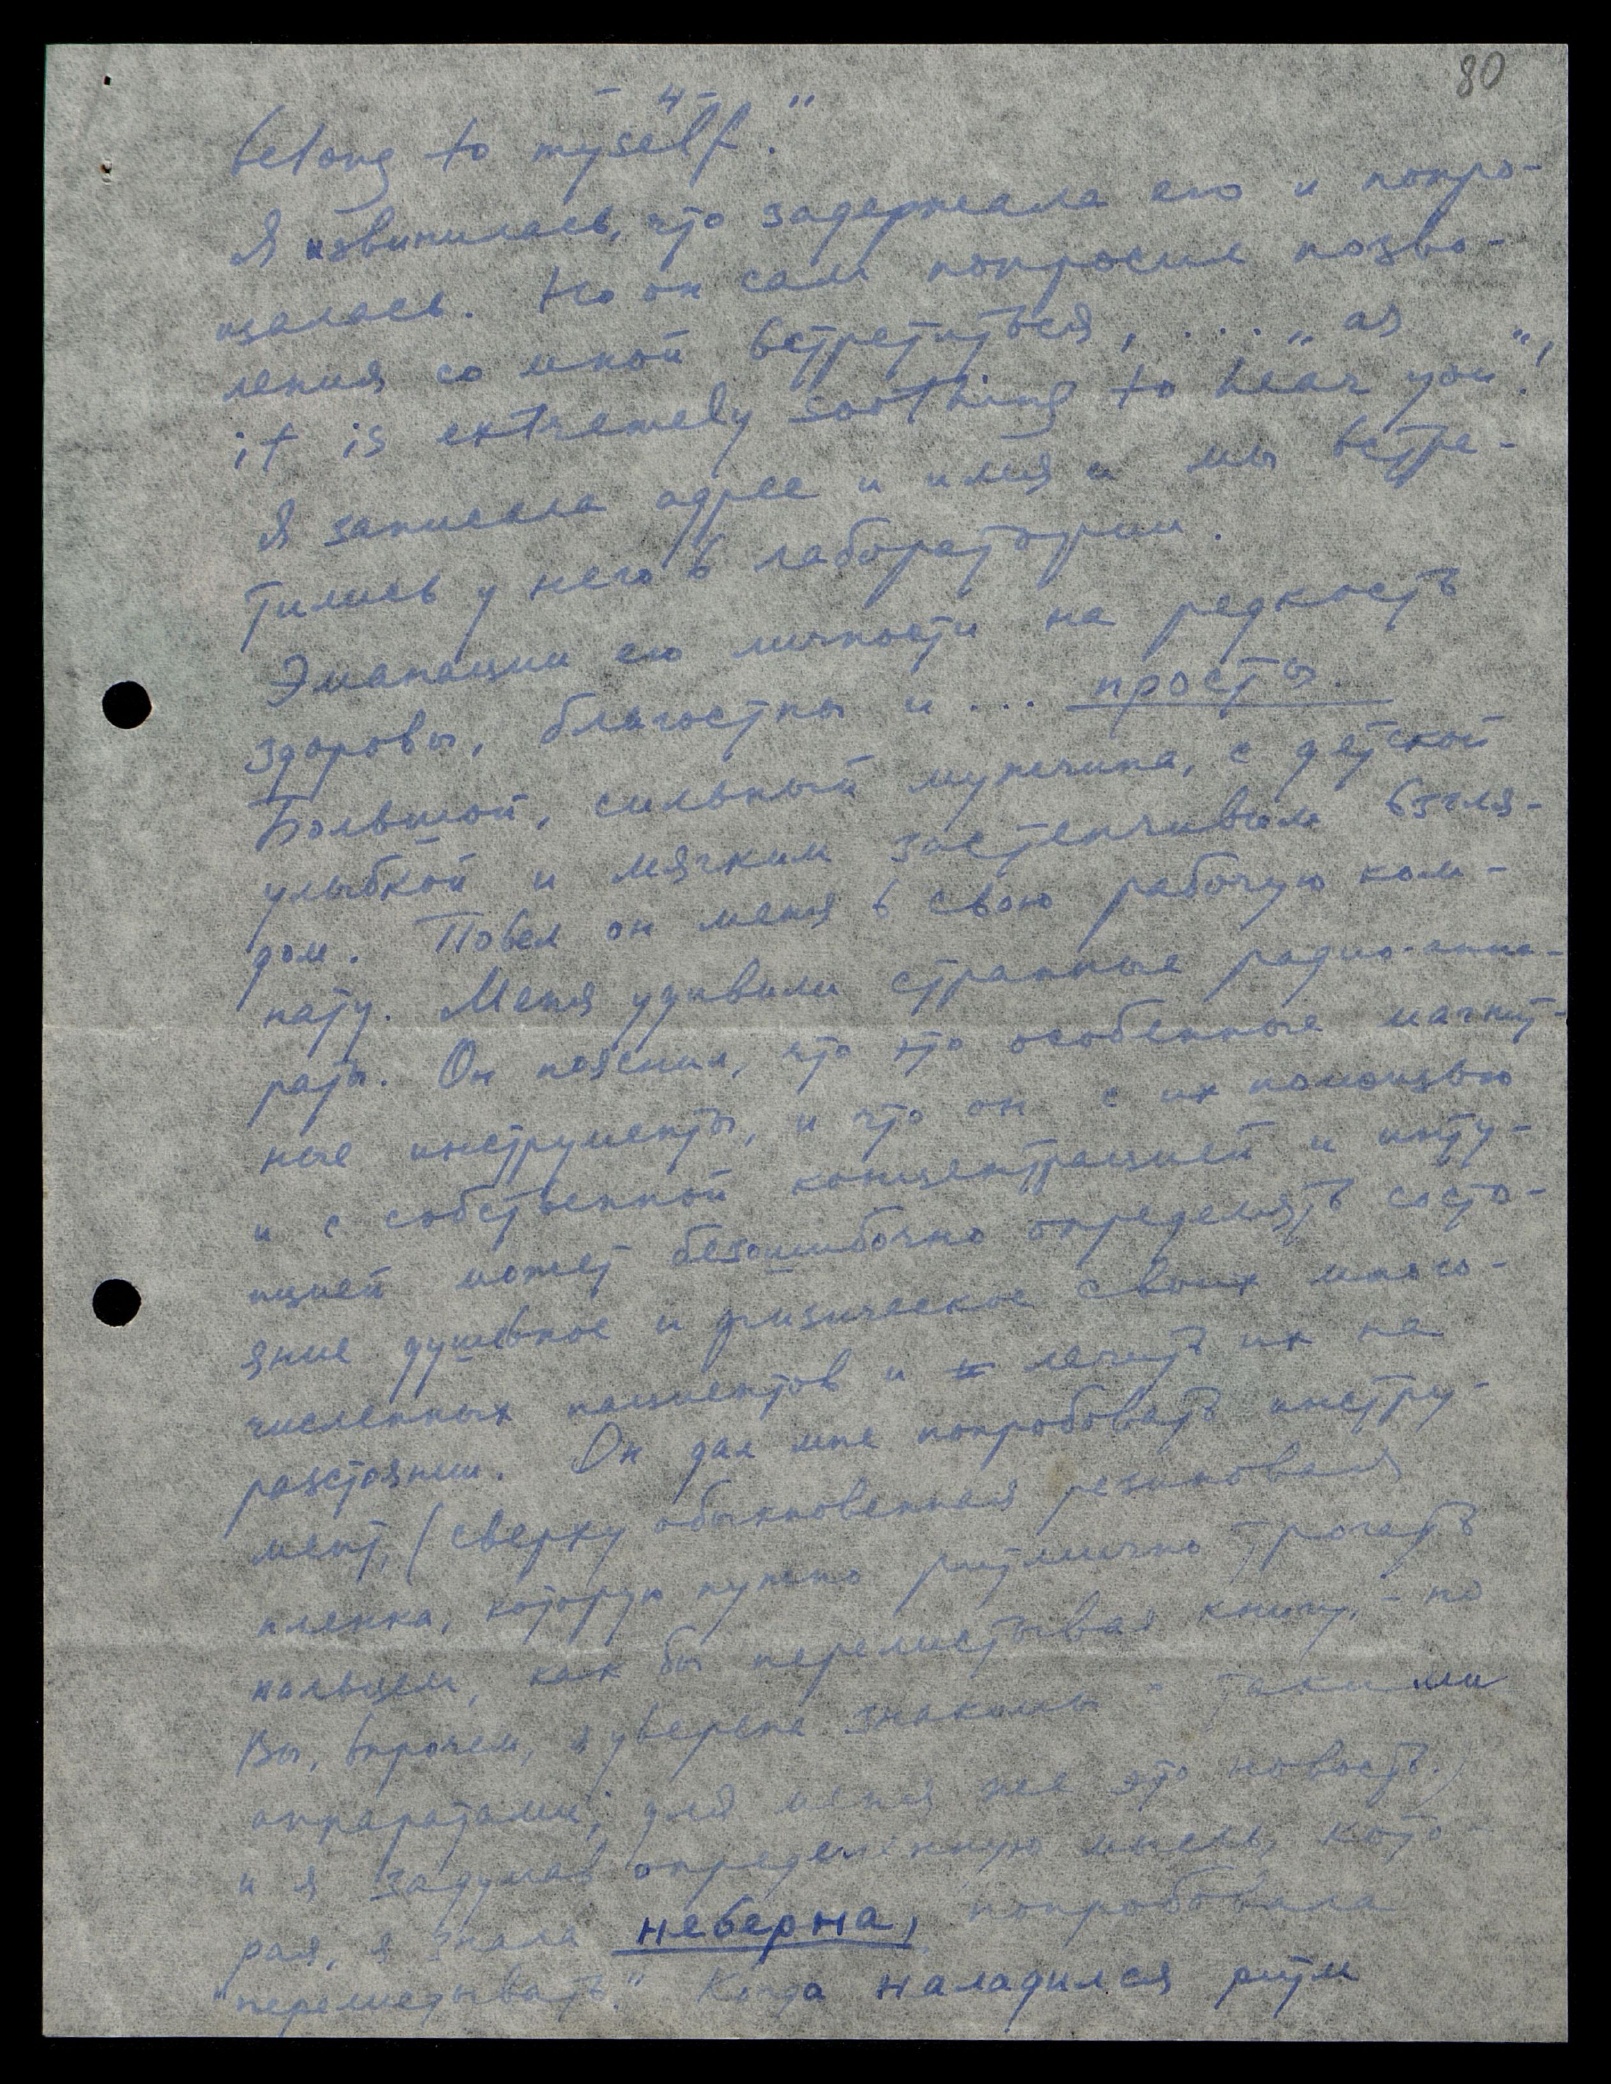 80
- 4 -
belong to myself."
Я извинилась, что задержала его и попро-
щалась. Но он сам попросил позво-
ления со мной встретиться, .... „as
it is extremely soothing to hear you"!
Я записала адрес и имя и мы встре-
тились у него в лаборатории.
Эманации его личности на редкость
здоровы, благостны и ... просты.
Большой, сильный мужчина, с детской
улыбкой и мягким застенчивым взгля-
дом. Повел он меня в свою рабочую ком-
нату. Меня удивили странные радио-аппа-
раты. Он пояснил, что это особенные магнит-
ные инструменты, и что он с их помощью
и с собственной концентрацией и инту-
ицией может безошибочно определять состо-
яние душевное и физическое своих много-
численных пациентов и лечить их на
разстоянии. Он дал мне попробовать инстру-
мент, (сверху обыкновенная резиновая
пленка, которую нужно ритмично трогать
пальцем, как бы перелистывая книгу, - но
Вы, впрочем, я уверена знакомы с такими
аппаратами; для меня же это новость.)
и я задумав определенную мысль, кото-
рая, я знала неверна, попробовала
"перелистывать." Когда наладился ритм